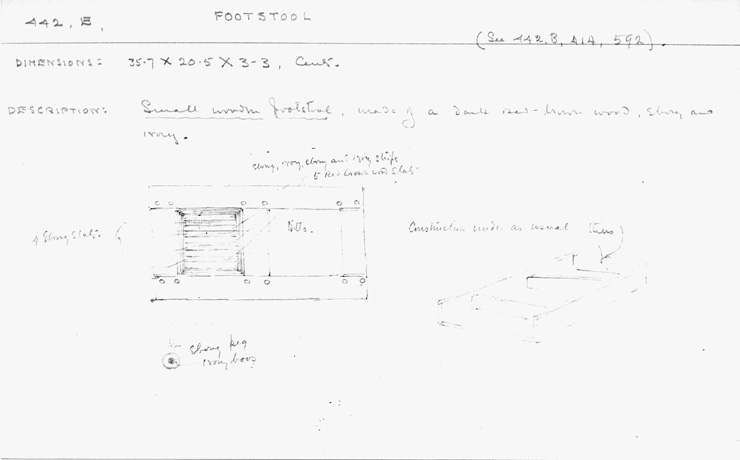 442, E.
FOOTSTOOL
(See 442.B, 414, 592).
DIMENSIONS: 35.7 X 20.5 X 3-3, Cent.
DESCRIPTION: Small wooden footstool, made of a dark red-brown wood, Ebony and
ivory.
ebony, ivory, ebony and ivory strips
5 red brown wood slats
Ebony slats.
Ditto.
Construction under as usual
Ebony peg
ivory boss